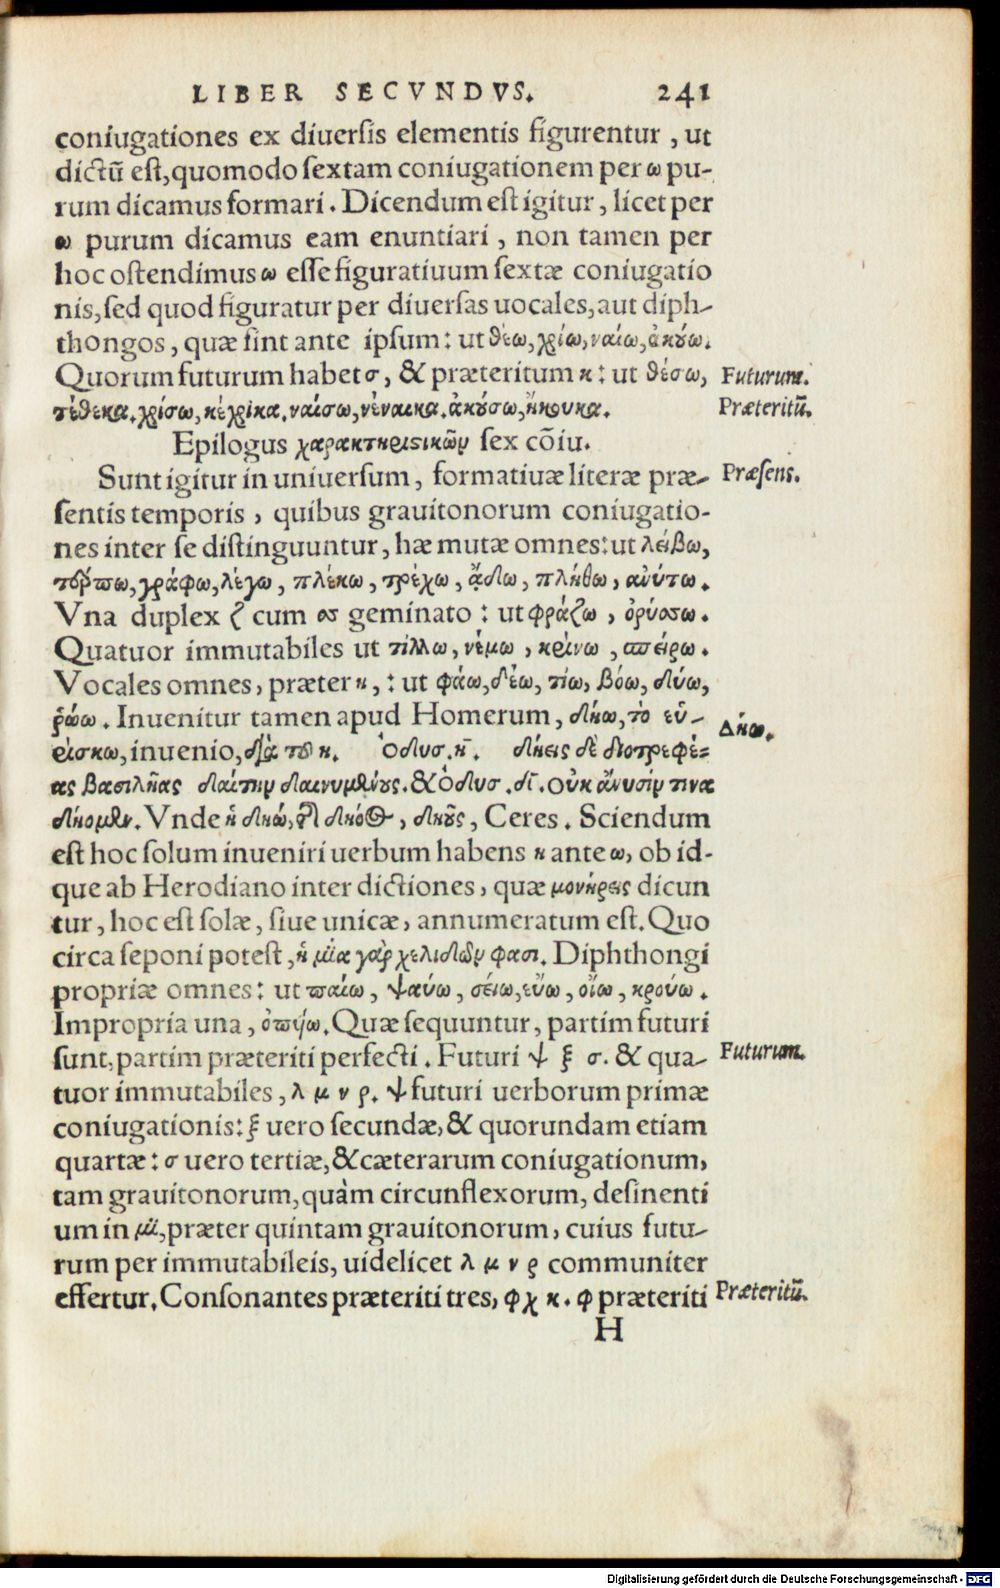 LIBER SECVNDVS. 241
coniugationes ex diuersis elementis figurentur, ut
dictũ est, quomodo sextam coniugationem per ω pu-
rum dicamus formari. Dicendum est igitur, licet per
ω purum dicamus eam enuntiari, non tamen per
hoc ostendimus ω esse figuratiuum sextæ coniugatio
nis, sed quod figuratur per diuersas uocales, aut diph-
thongos, quæ sint ante ipsum: ut θέω, χρίω, ναίω, ἀκούω.
Quorum futurum habet σ, & præteritum κ: ut θέσω, Futurum.
τέθεκα. χρίσω, κέχρικα. ναίσω, νέναικα. ἀκούσω, ἤκουκα. Præteritũ.
Epilogus χαρακτηριστικῶν sex cõiu.
Sunt igitur in uniuersum, formatiuæ literæ præ- Præsens.
sentis temporis, quibus grauitonorum coniugatio-
nes inter se distinguuntur, hæ mutæ omnes: ut λείβω,
τύπτω, γράφω, λέγω, πλέκω, τρέχω, ᾄδω, πλήθω, ἀνύτω.
Vna duplex ζ cum σσ geminato: ut φράζω, ὀρύσσω.
Quatuor immutabiles ut τίλλω, νέμω, κρίνω, σπείρω.
Vocales omnes, præter η,: ut φάω, δέω, τίω, βόω, δύω,
ῥώω. Inuenitur tamen apud Homerum, δήω, τὸ εὑ- Δήω.
ρίσκω, inuenio, διὰ τοῦ η. Ὀδυσ. η̄. δήεις δὲ διοτρεφέ-
ας βασιλῆας δαίτην δαινυμένους. & Ὀδυσ. δ̄. οὐκ ἄνυσίν τινα
δήομεν. Vnde ἡ δηώ, τῆς δηόος, δηοῦς, Ceres. Sciendum
est hoc solum inueniri uerbum habens η ante ω, ob id-
que ab Herodiano inter dictiones, quæ μονήρεις dicun
tur, hoc est solæ, siue unicæ, annumeratum est. Quo
circa seponi potest, ἡ μία γὰρ χελιδὼν φασι. Diphthongi
propriæ omnes: ut παίω, ψαύω, σείω, εὕω, οἴω, κρούω.
Impropria una, ὀπυίω. Quæ sequuntur, partim futuri
sunt, partim præteriti perfecti. Futuri ψ ξ σ. & qua- Futurum.
tuor immutabiles, λ μ ν ρ. ψ futuri uerborum primæ
coniugationis: ξ uero secundæ, & quorundam etiam
quartæ: σ uero tertiæ, & cæterarum coniugationum,
tam grauitonorum, quàm circunflexorum, desinenti
um in μι, præter quintam grauitonorum, cuius futu-
rum per immutabileis, uidelicet λ μ ν ρ communiter
effertur. Consonantes præteriti tres, φ χ κ. φ præteriti Præteritũ.
H
Digitalisierung gefördert durch die Deutsche Forschungsgemeinschaft - DFG